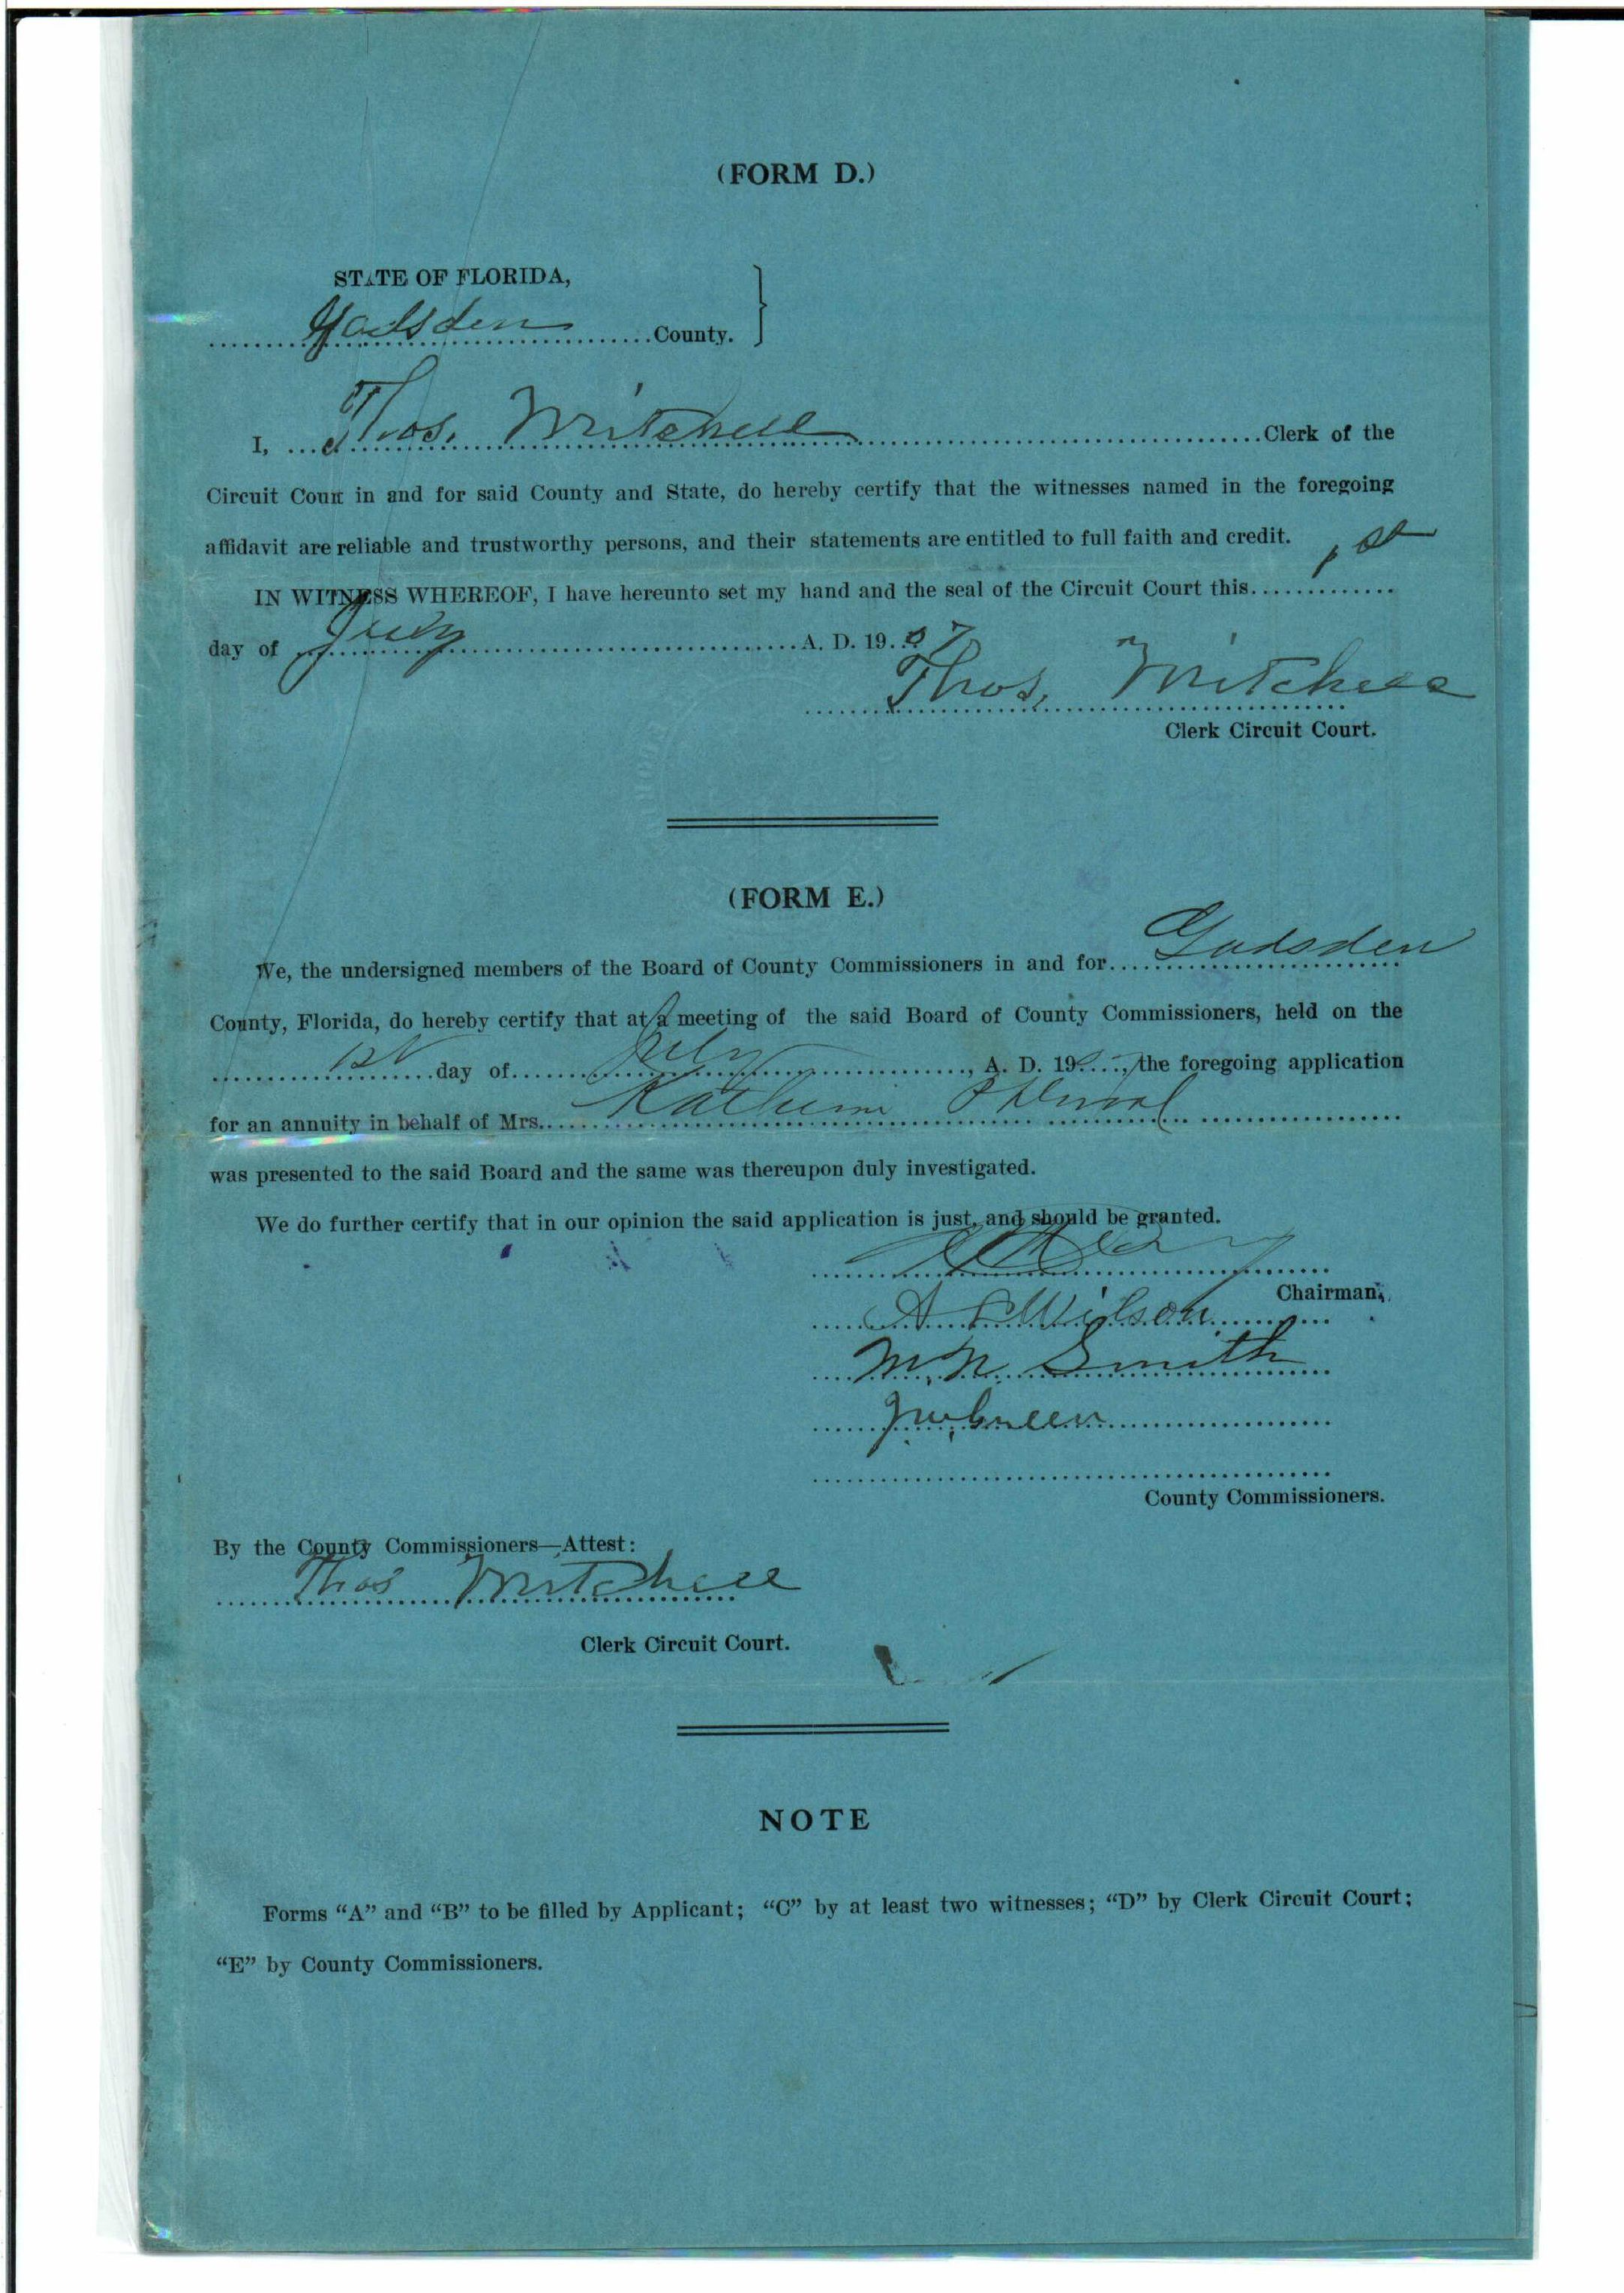 (FORM D.)
STATE OF FLORIDA,
Gadsden County.
I, Thos. Mitchell Clerk of the
Circuit Court in and for said County and State, do hereby certify that the witnesses named in the foregoing
affidavit are reliable and trustworthy persons, and their statements are entitled to full faith and credit.
IN WITNESS WHEREOF, I have hereunto set my hand and the seal of the Circuit Court this 1st
day of July A. D. 1907
Thos. Mitchell
Clerk Circuit Court.
(FORM E.)
We, the undersigned members of the Board of County Commissioners in and for Gadsden
County, Florida, do hereby certify that at a meeting of the said Board of County Commissioners, held on the
1st day of July, A. D. 190, the foregoing application
for an annuity in behalf of Mrs.
was presented to the said Board and the same was thereupon duly investigated.
We do further certify that in our opinion the said application is just, and should be granted.
Chairman,
Wilson
M. N. Smith
County Commissioners.
By the County Commissioners—Attest:
Thos Mitchell
Clerk Circuit Court.
NOTE
Forms “A” and “B” to be filled by Applicant; “C” by at least two witnesses; “D” by Clerk Circuit Court;
“E” by County Commissioners.